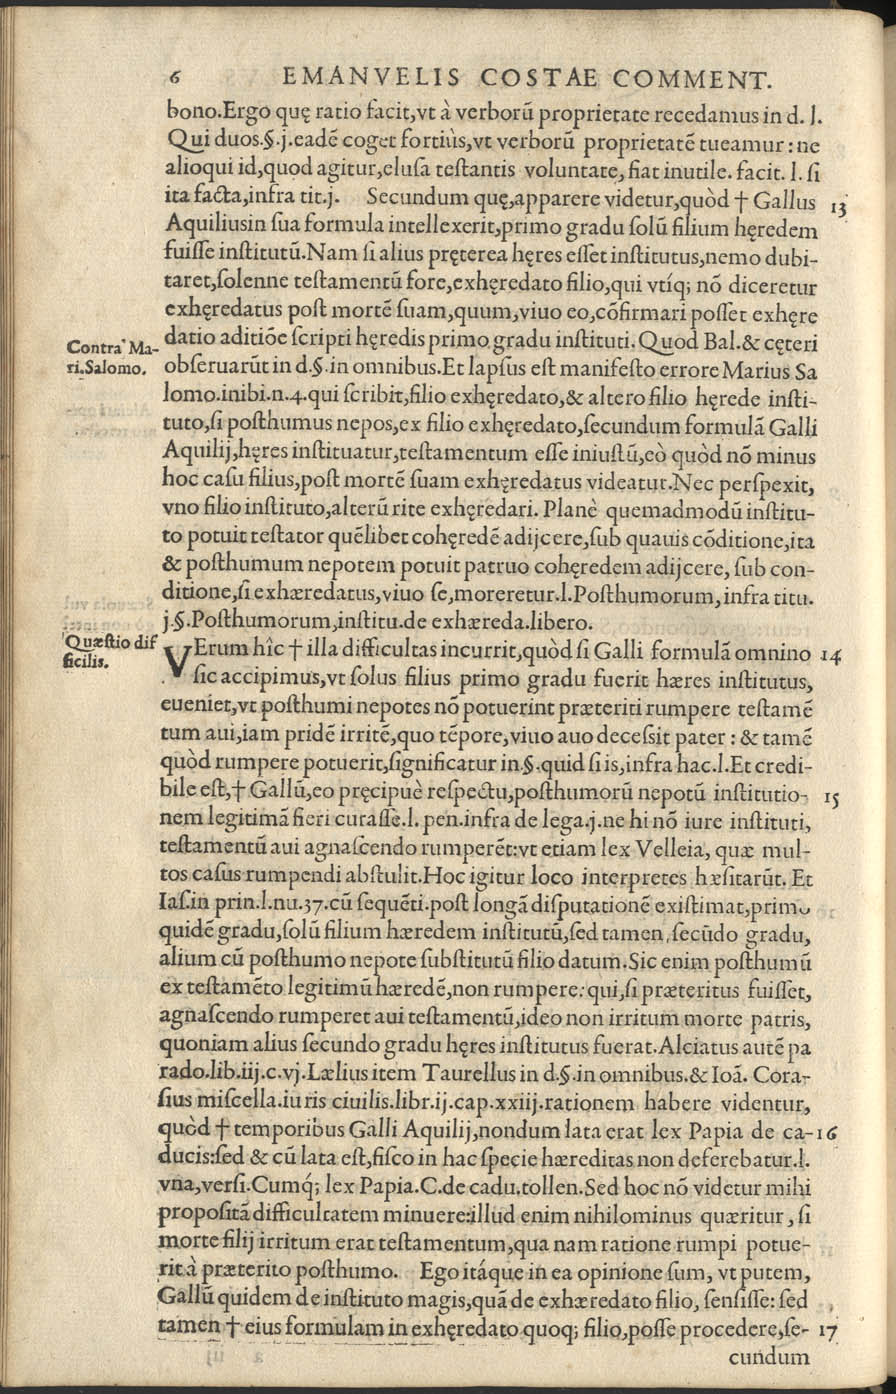 6 EMANVELIS COSTAE COMMENT.
bono.Ergo quę ratio facit,vt à verborū proprietate recedamus in d. l.
Qui duos.§.j.eadē coget fortiùs,vt verborū proprietatē tueamur : ne
alioqui id,quod agitur,elusa testantis voluntate, fiat inutile. facit. l. si
ita facta,infra tit.j. Secundum quę,apparere videtur,quòd † Gallus 13
Aquiliusin sua formula intellexerit,primo gradu solū filium hęredem
fuisse institutū.Nam si alius pręterea hęres esset institutus,nemo dubi-
taret,solenne testamentū fore,exhęredato filio,qui vtíq; nō diceretur
exhęredatus post mortē suam,quum,viuo eo,cōfirmari posset exhęre
datio aditiōe scripti hęredis primo gradu instituti. Quod Bal.& cęteri
Contra Ma-
ri.Salomo.
obseruarūt in d.§.in omnibus.Et lapsus est manifesto errore Marius Sa
lomo.inibi.n.4.qui scribit,filio exhęredato,& altero filio hęrede insti-
tuto,si posthumus nepos,ex filio exhęredato,secundum formulā Galli
Aquilij,hęres instituatur,testamentum esse iniustū,eò quòd nō minus
hoc casu filius,post mortē suam exhęredatus videatur.Nec perspexit,
vno filio instituto,alterū rite exhęredari. Planè quemadmodū institu-
to potuit testator quēlibet cohęredē adijcere,sub quauis cōditione,ita
& posthumum nepotem potuit patruo cohęredem adijcere, sub con-
ditione,si exhæredatus,viuo se,moreretur.l.Posthumorum,infra titu.
j.§.Posthumorum,institu.de exhæreda.libero.
Quæstio dif
ficilis.
VErum hîc † illa difficultas incurrit,quòd si Galli formulā omnino 14
sic accipimus,vt solus filius primo gradu fuerit hæres institutus,
eueniet,vt posthumi nepotes nō potuerint præteriti rumpere testamē
tum aui,iam pridē irritē,quo tēpore,viuo auo decessit pater : & tamē
quòd rumpere potuerit,significatur in.§.quid si is,infra hac.l.Et credi-
bile est,† Gallū,eo pręcipuè respectu,posthumorū nepotū institutio- 15
nem legitimā fieri curasse.l. pen.infra de lega.j.ne hi nō iure instituti,
testamentū aui agnascendo rumperēt:vt etiam lex Velleia, quæ mul-
tos casus rumpendi abstulit.Hoc igitur loco interpretes hæsitarūt. Et
Ias.in prin.l.nu.37.cū sequēti.post longā disputationē existimat,primo
quidē gradu,solū filium hæredem institutū,sed tamen,secūdo gradu,
alium cū posthumo nepote substitutū filio datum.Sic enim posthumū
ex testamēto legitimū hæredē,non rumpere: qui,si præteritus fuisset,
agnascendo rumperet aui testamentū,ideo non irritum morte patris,
quoniam alius secundo gradu hęres institutus fuerat.Alciatus autē pa
rado.lib.iij.c.vj.Lælius item Taurellus in d.§.in omnibus.& Ioā. Cora-
sius miscella.iuris ciuilis.libr.ij.cap.xxiij.rationem habere videntur,
quòd † temporibus Galli Aquilij,nondum lata erat lex Papia de ca- 16
ducis:sed & cū lata est,fisco in hac specie hæreditas non deferebatur.l.
vna,versi.Cumq́; lex Papia.C.de cadu.tollen.Sed hoc nō videtur mihi
propositā difficultatem minuere:illud enim nihilominus quæritur, si
morte filij irritum erat testamentum,qua nam ratione rumpi potue-
rit à præterito posthumo. Ego itáque in ea opinione sum, vt putem,
Gallū quidem de instituto magis,quā de exhæredato filio, sensisse: sed
tamen † eius formulam in exhęredato quoq; filio,posse procedere,se- 17
cundum